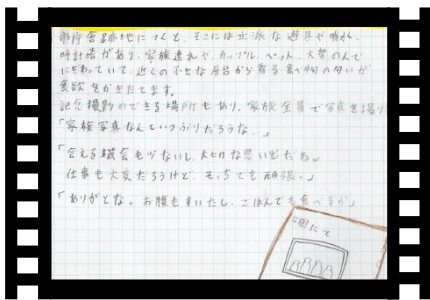 市庁舎跡地につくと、そこには立派な遊具や噴水、
時計塔があり、家族連れや、カップル、ペット、大勢の人で
にぎわっていて、近くの小さな屋台から香る食べ物の匂いが
食欲をかきたてます。
記念撮影のできる場所もあり、家族全員で写真を撮り
「家族写真なんていつぶりだろうな…」
「会える機会も少ないし、大切な思い出だね。
仕事も大変だろうけど、もっとも頑張。」
「ありがとな。お腹もすいたし、ごはんでも食べるか」